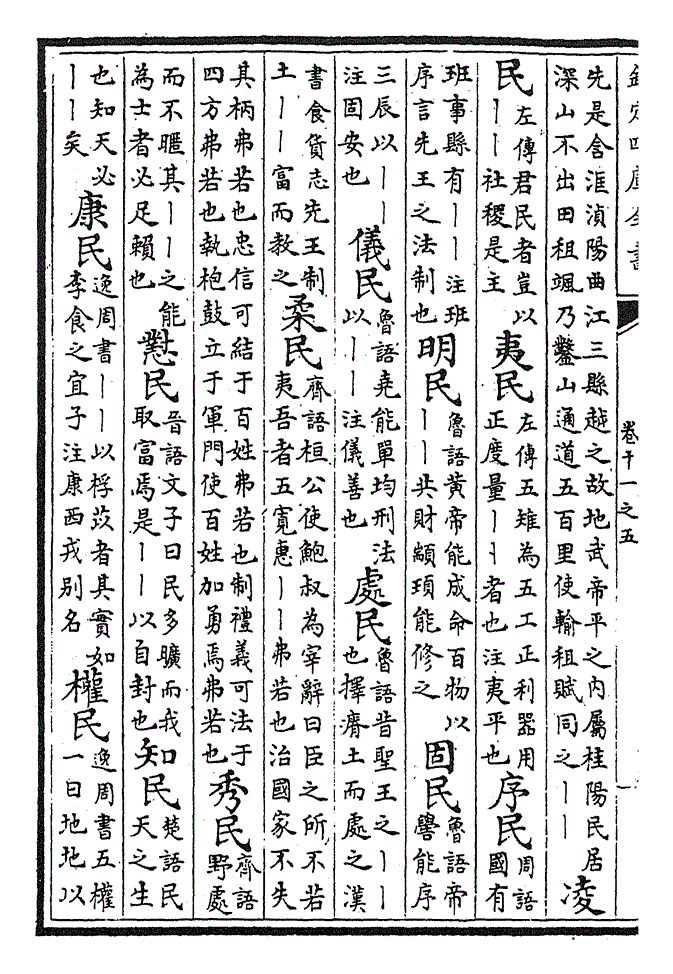 欽定四庫全書
卷十一之五
先是含洭湞陽曲江三縣越之故地武帝平之內屬桂陽民居
深山不出田租颯乃鑿山通道五百里使輸租賦同之丨丨
凌
民
左傳君民者豈以
丨丨社稷是主
夷民
左傳五雉為五工正利器用
正度量丨丨者也注夷平也
序民
周語
國有
班事縣有丨丨注班
序言先王之法制也
明民
魯語黃帝能成命百物以
丨丨共財顓頊能修之
固民
魯語帝
嚳能序
三辰以丨丨
注固安也
儀民
魯語堯能單均刑法
以丨丨注儀善也
處民
魯語昔聖王之丨丨
也擇瘠土而處之漢
書食貨志先王制
土丨丨富而教之
柔民
齊語桓公使鮑叔為宰辭曰臣之所不若
夷吾者五寬惠丨丨弗若也治國家不失
其柄弗若也忠信可結于百姓弗若也制禮義可法于
四方弗若也執枹鼓立于軍門使百姓加勇焉弗若也
秀民
齊語
野處
而不暱其丨丨之能
為士者必足賴也
懟民
晉語文子曰民多曠而我
取富焉是丨丨以自封也
知民
楚語民
天之生
也知天必
丨丨矣
康民
逸周書丨丨以桴苡者其實如
李食之宜子注康西戎別名
權民
逸周書五權
一曰地地以